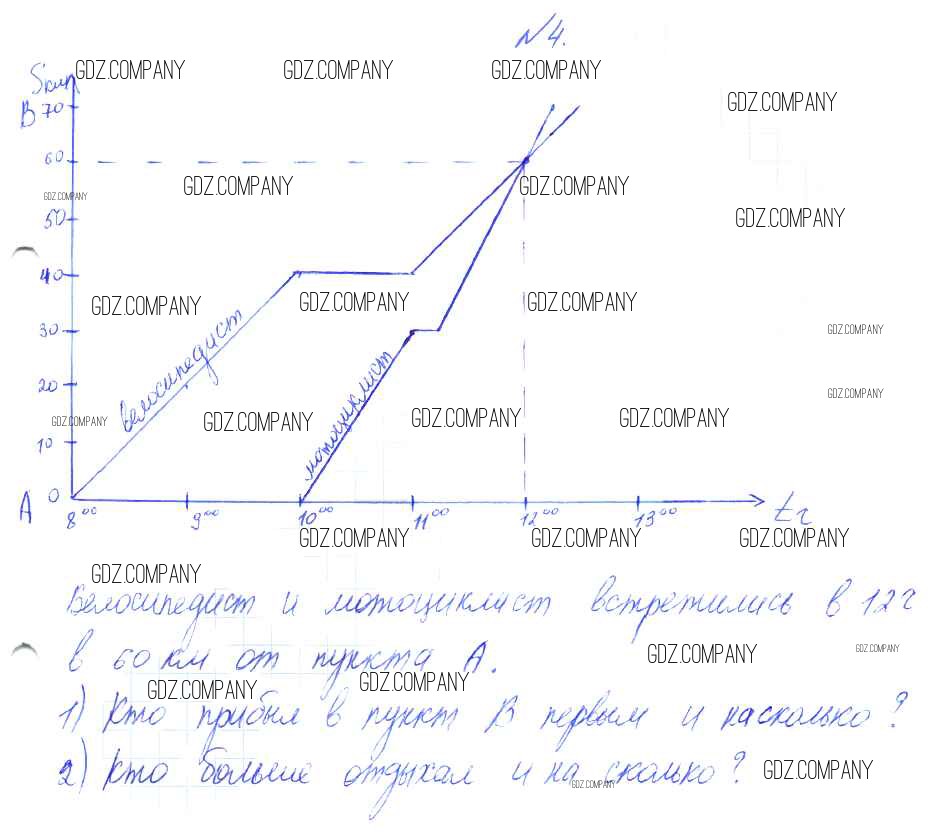 №4.
GDZ.COMPANY GDZ.COMPANY GDZ.COMPANY
Sкм
GDZ.COMPANY
B 70
60
GDZ.COMPANY GDZ.COMPANY
GDZ.COMPANY
50 GDZ.COMPANY
40
GDZ.COMPANY GDZ.COMPANY GDZ.COMPANY
30 GDZ.COMPANY
велосипедист
мотоциклист
20 GDZ.COMPANY
GDZ.COMPANY GDZ.COMPANY GDZ.COMPANY GDZ.COMPANY
10
0
A 8⁰⁰ 9⁰⁰ 10⁰⁰ 11⁰⁰ 12⁰⁰ 13⁰⁰ tч
GDZ.COMPANY GDZ.COMPANY GDZ.COMPANY
GDZ.COMPANY
Велосипедист и мотоциклист встретились в 12ч
в 60 км от пункта А.
GDZ.COMPANY GDZ.COMPANY
GDZ.COMPANY GDZ.COMPANY
1) Кто прибыл в пункт В первым и насколько?
2) Кто больше отдыхал и на сколько?
GDZ.COMPANY
GDZ.COMPANY